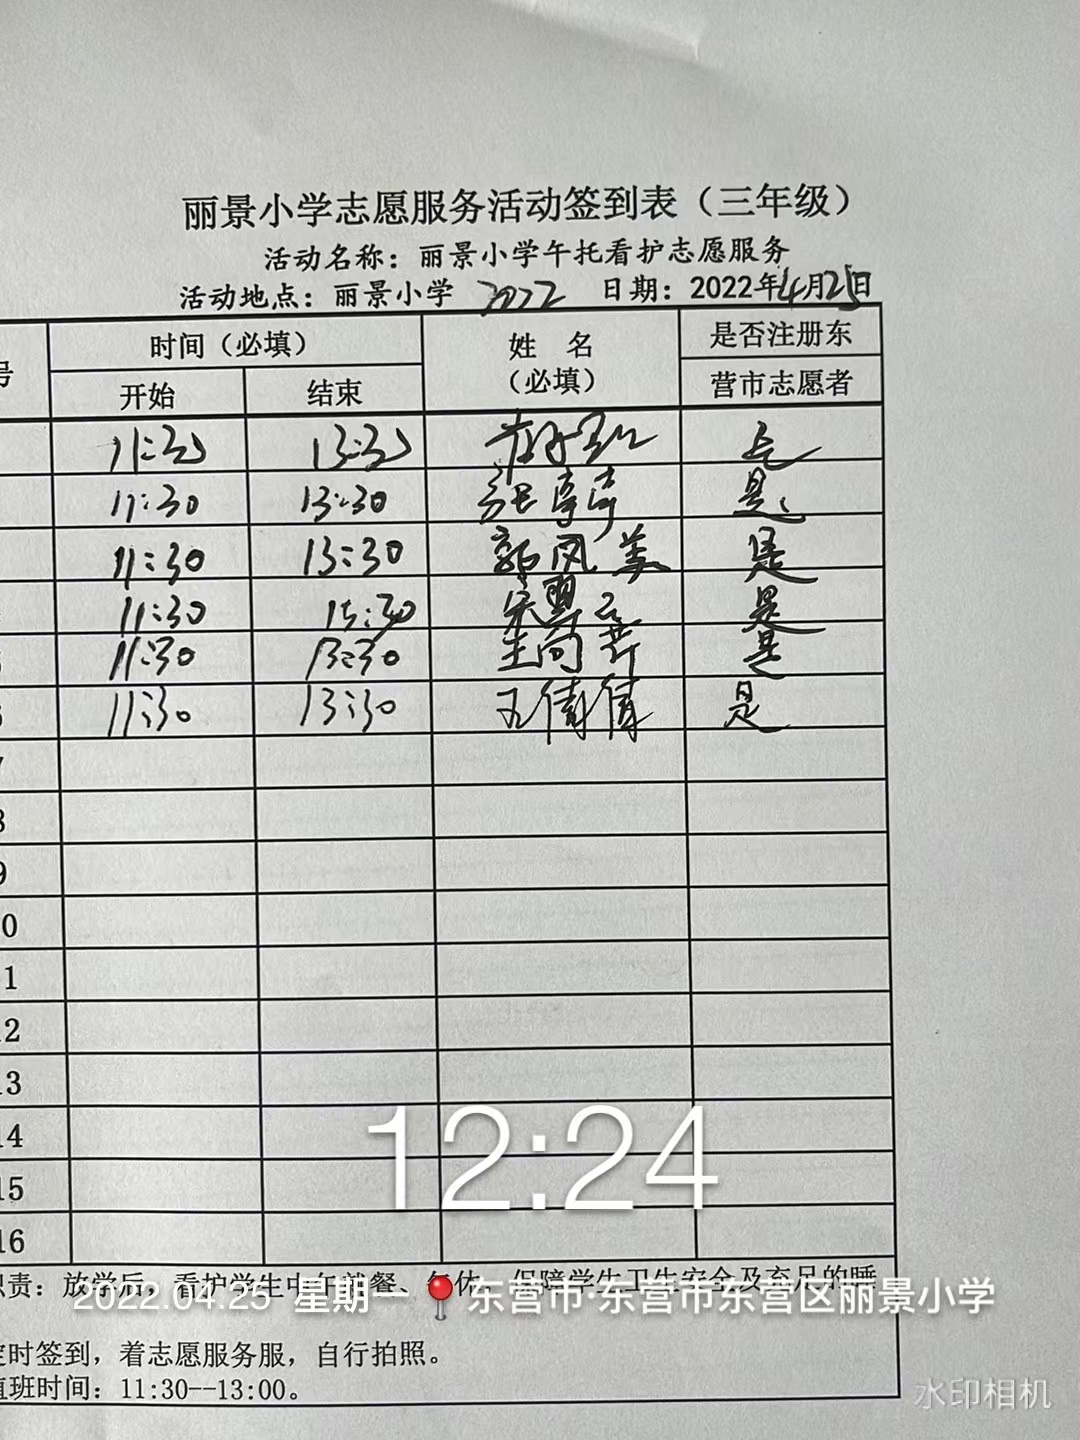 丽景小学志愿服务活动签到表（三年级）
活动名称：丽景小学午托看护志愿服务
活动地点：丽景小学 2022 日期：2022年4月25日
号 时间（必填） 姓 名（必填） 是否注册东
开始 结束 营市志愿者
11:30 13:30 是
11:30 13:30 张 是
11:30 13:30 郭凤美 是
11:30 13:30 宋翠 是
11:30 13:30 王向 是
11:30 13:30 王倩倩 是
7
8
9
10
11
12
13
14
12:24
15
16
职责：放学后，看护学生中午就餐、午休，保障学生卫生安全及充足的睡
2022.04.25 星期一 东营市·东营市东营区丽景小学
定时签到，着志愿服务服，自行拍照。
值班时间：11:30--13:00。
水印相机